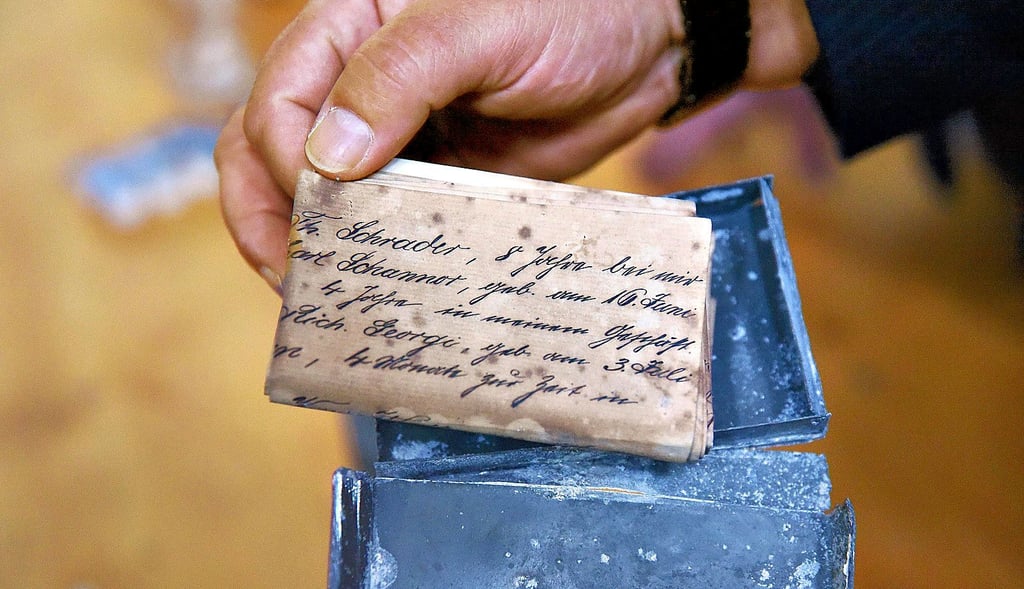 Th. Schrader, 8 Jahre bei mir
Carl Schannor, geb. am 16. Juni
4 Jahre in meinem Geschäft.
Georgi, geb. am 3. Juli
4 Monate zur Zeit in